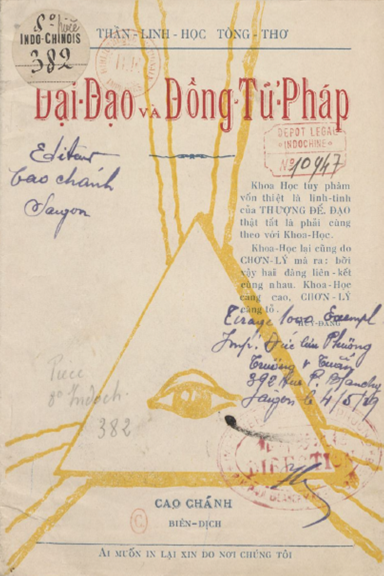 8° pièce
INDO-CHINOIS
382
THẦN-LINH-HỌC TÒNG-THƠ
Đại-Đạo VÀ Đồng-Tử-Pháp
DEPOT LEGAL
INDOCHINE
N° 10947
Editeur
Cao chánh
Saigon
Khoa Học tuy phàm
vốn thiệt là linh-tinh
của THƯỢNG ĐẾ. ĐẠO
thật tất là phải cùng
theo với Khoa-Học.
Khoa-Học lại cũng do
CHƠN-LÝ mà ra: bởi
vậy hai đàng liên-kết
cùng nhau. Khoa-Học
càng cao, CHƠN-LÝ
càng tỏ.
Tirage 1000 Exempl
Imp. Đức Lưu Phương
392 Rue P. Blanchy
Saigon le 4/5/29
Pièce
8° Indoch.
382
CAO CHÁNH
BIÊN-DỊCH
C
AI MUỐN IN LẠI XIN DO NƠI CHÚNG TÔI